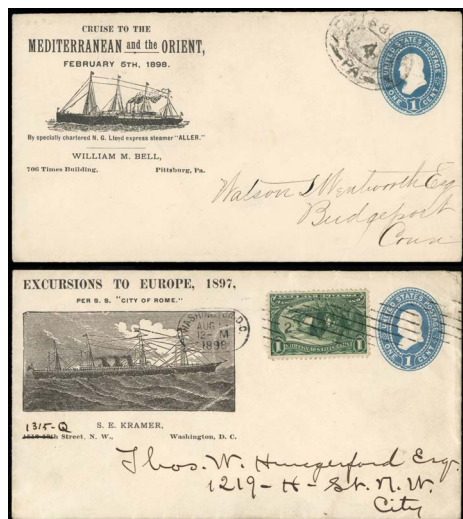 CRUISE TO THE
MEDITERRANEAN and the ORIENT,
FEBRUARY 5TH, 1898.
By specially chartered N. G. Lloyd express steamer "ALLER."
WILLIAM M. BELL,
706 Times Building, Pittsburg, Pa.
PA.
UNITED STATES POSTAGE
ONE 1 CENT
Watson S Wentworth Esq
Bridgeport
Conn
EXCURSIONS TO EUROPE, 1897,
PER S. S. "CITY OF ROME."
WASHINGTON, D.C.
AUG
12- M
1898
1 1
UNITED STATES POSTAGE
ONE 1 CENT
S. E. KRAMER,
1315-Q
Street, N. W., Washington, D. C.
Thos. W. Hungerford Esq.
1219-H-St. N.W.
City